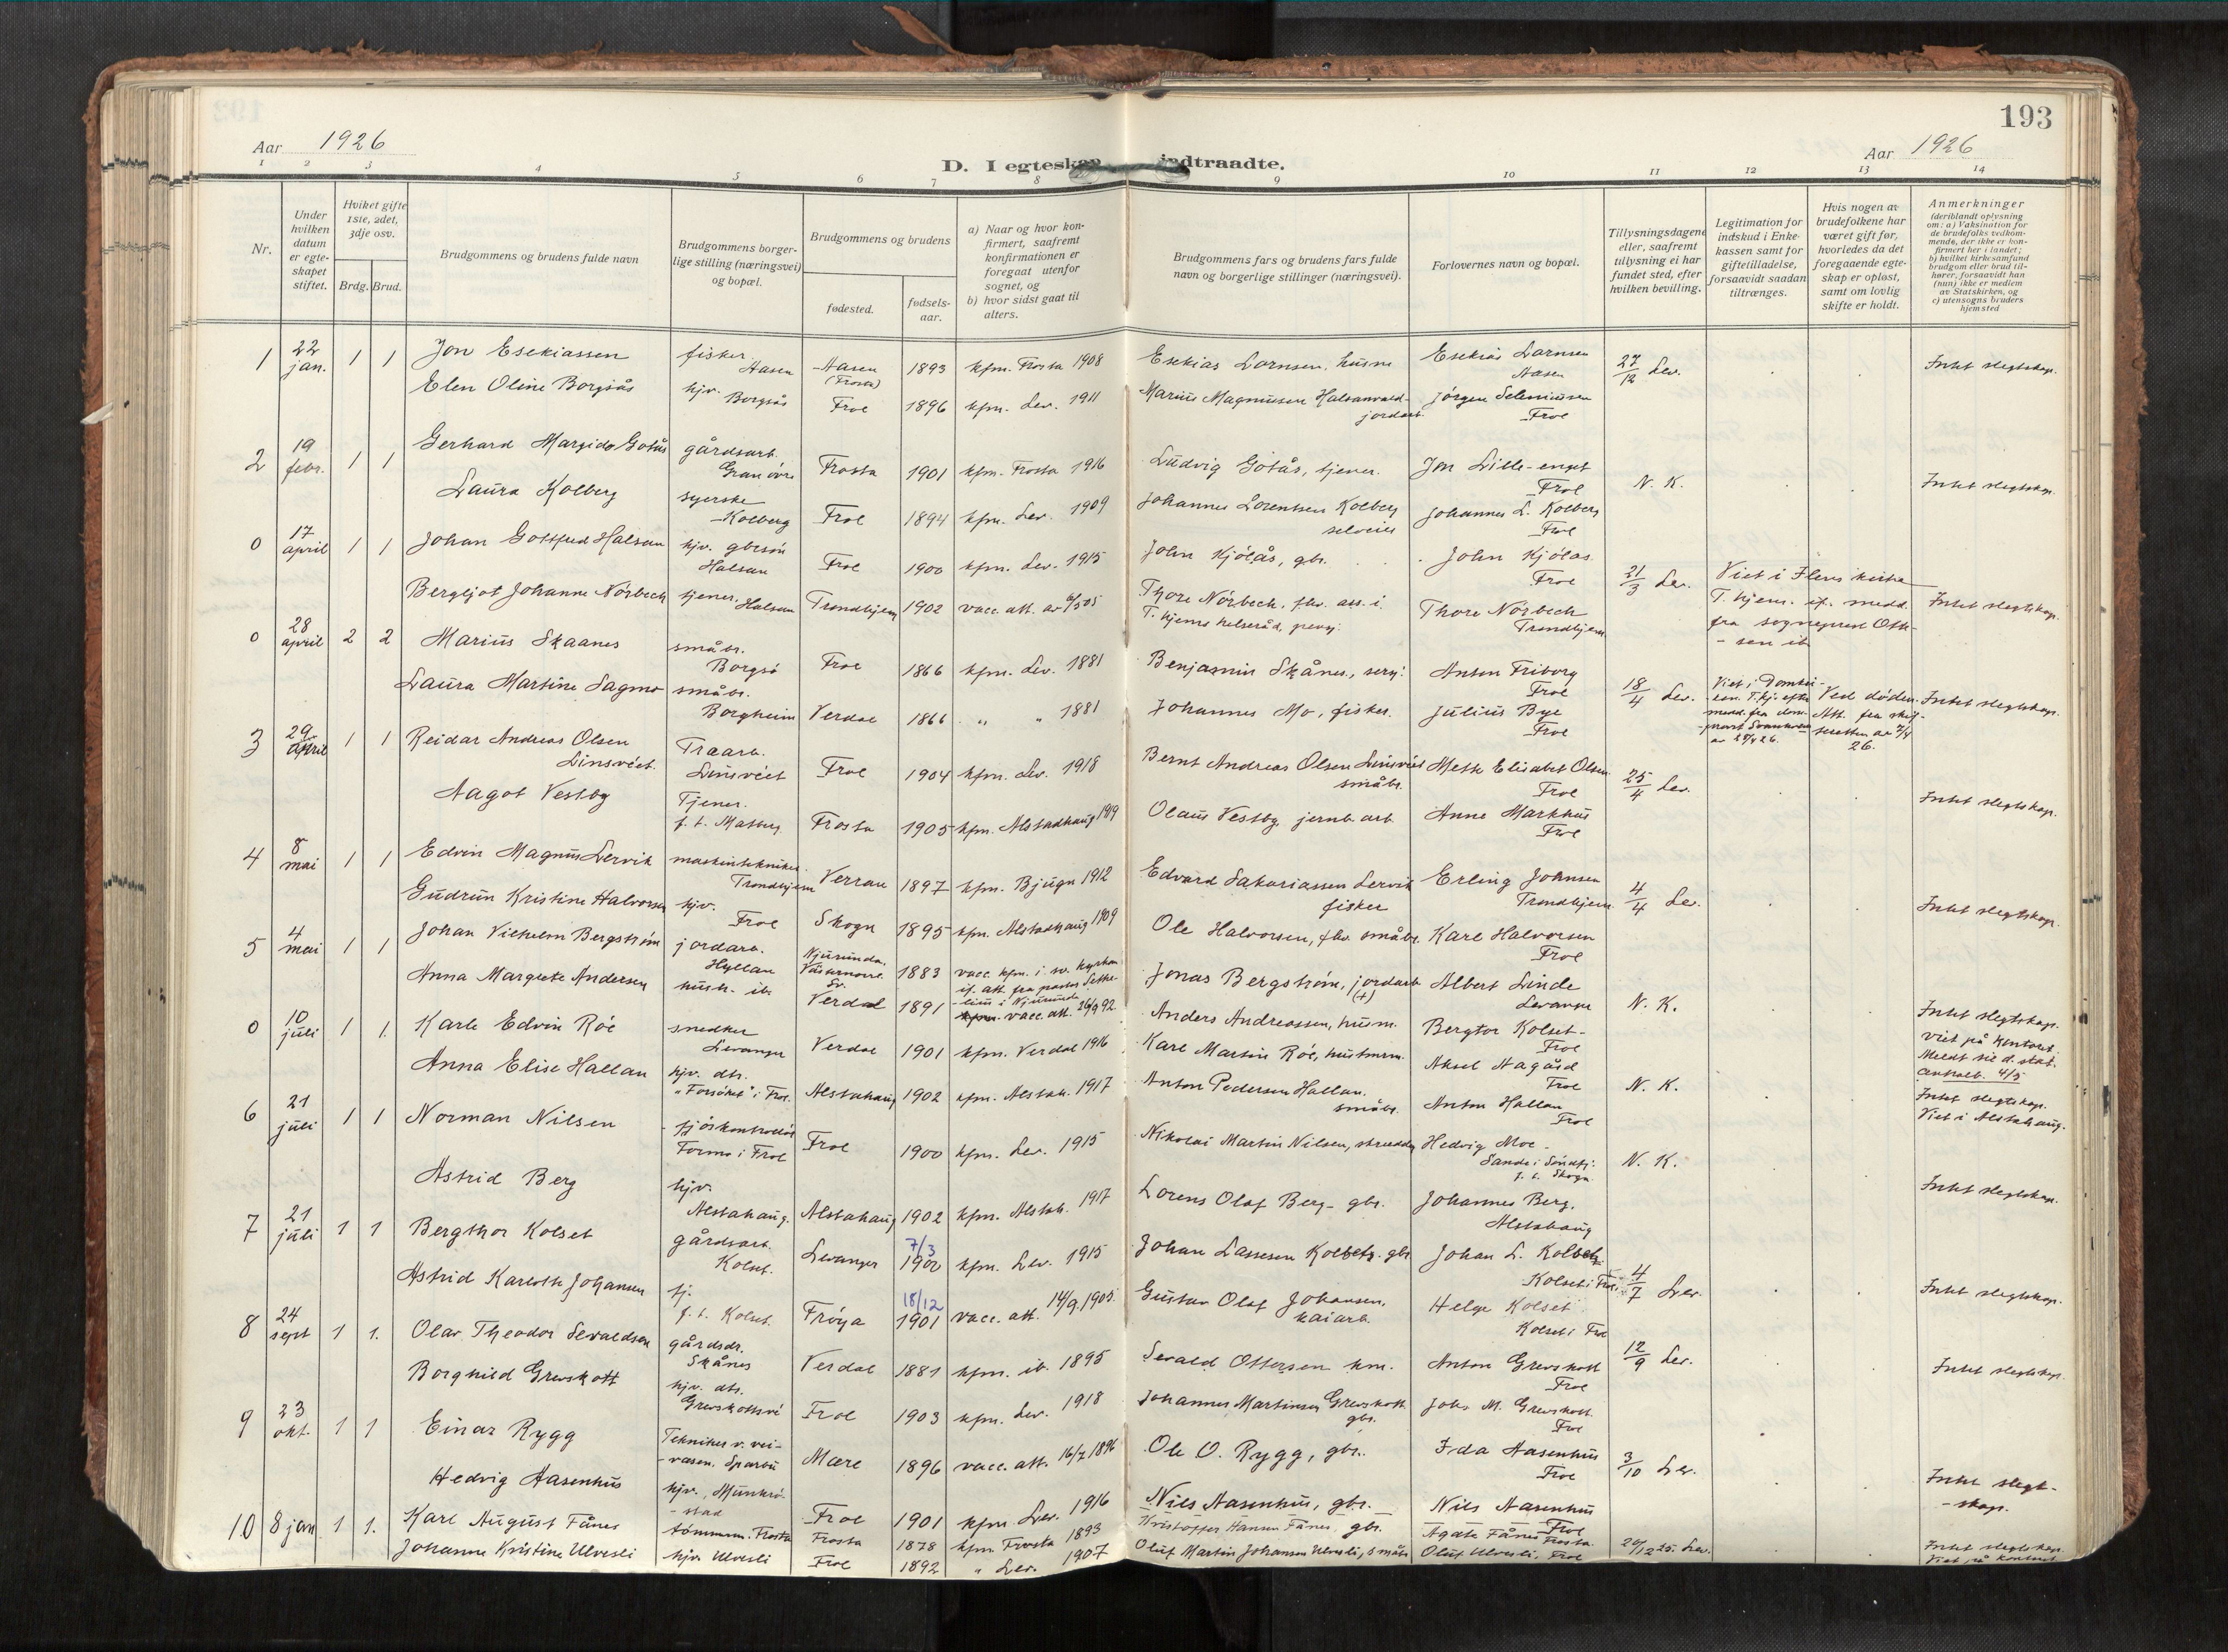 193
Aar 1926
D. I egteskap indtraadte.
Aar 1926
1 2 3 4 5 6 7 8 9 10 11 12 13 14
Nr.
Under hvilken datum er egteskapet stiftet.
Hvilket gifte 1ste, 2det, 3dje osv.
Brdg. Brud.
Brudgommens og brudens fulde navn
Brudgommens borgerlige stilling (næringsvei) og bopæl.
Brudgommens og brudens
fødested.
fødselsaar.
a) Naar og hvor konfirmert, saafremt konfirmationen er foregaat utenfor sognet, og
b) hvor sidst gaat til alters.
Brudgommens fars og brudens fars fulde navn og borgerlige stillinger (næringsvei).
Forlovernes navn og bopæl.
Tillysningsdagene eller, saafremt tillysning ei har fundet sted, efter hvilken bevilling.
Legitimation for indskud i Enkekassen samt for giftetilladelse, forsaavidt saadan tiltrænges.
Hvis nogen av brudefolkene har været gift før, hvorledes da det foregaaende egteskap er opløst, samt om lovlig skifte er holdt.
Anmerkninger
(deriblandt oplysning om: a) Vaksination for de brudefolks vedkommende, der ikke er konfirmert her i landet; b) hvilket kirkesamfund brudgom eller brud tilhører, forsaavidt han (hun) ikke er medlem av Statskirken, og c) utensogns bruders hjemsted
1 22 jan. 1 1 Jon Esekiassen fisker Aasen Aasen (Frosta) 1893 kfm. Frosta 1908 Esekias Larnsen, husm Esekias Larnsen Aasen 27/12 Lev. Intet slegtskap.
Elen Oline Borgsås hjv. Borgsås Frol 1896 kfm. Lev. 1911 Marius Magnussen Halsanvald jordarb. Jørgen Seleniusen Frol
2 19 febr. 1 1 Gerhard Margido Gotås gårdsarb. Gran övre Frosta 1901 kfm. Frosta 1916 Ludvig Gotås, tjener. Jon Lille-enget Frol N. K. Intet slegtskap.
Laura Kolberg syerske Kolberg Frol 1894 kfm. Lev. 1909 Johannes Lorentsen Kolberg selveier Johannes L. Kolberg Frol
0 17 april 1 1 Johan Gottfred Halsan hjv. gbrsøn Halsan Frol 1900 kfm. Lev. 1915 John Kjölås, gbr. John Kjölås Frol 21/3 Lev. Viet i Ilens kirke T.hjem. if. medd. fra sogneprest Ottesen ib. Intet slegtskap.
Bergljot Johanne Nörbech tjener. Halsan Trondhjem 1902 vacc. att. av Thore Nörbech, fhv. ass. i T.hjems helseråd, Thore Nörbech Trondhjem
0 28 april 2 2 Marius Skaanes småbr. Borgsö Frol 1866 kfm. Lev. 1881 Benjamin Skånes, Anton Friborg Frol 18/4 Lev. Viet i Domkirken. T.hj. efter medd. fra domprost Ved döden. Att. fra skifteretten av 26. Intet slegtskap.
Laura Martine Sagmo småbr. Borgheim Verdal 1866 " " 1881 Johannes Mo, fisker. Julius Bye Frol
3 29 april 1 1 Reidar Andreas Olsen Linsvéet. Traarb. Linsvéet Frol 1904 kfm. Lev. 1918 Bernt Andreas Olsen Linsvéet småbr. Mette Elisabet Olsen Frol 25/4 Lev. Intet slegtskap.
Aagot Vestby Tjener. f. t. Matberg Frosta 1905 kfm. Alstadhaug 1919 Olaus Vestby jernb. arb. Anne Markhus Frol
4 8 mai 1 1 Edvin Magnus Lervik maskintekniker Trondhjem Verran 1897 kfm. Bjugn 1912 Edvard Sakariassen Lervik fisker Erling Johnsen Trondhjem 4/4 Lev. Intet slegtskap.
Gudrun Kristine Halvorsen hjv. Frol Skogn 1895 kfm. Alstadhaug 1909 Ole Halvorsen, fhv. småbr. Karl Halvorsen Frol
5 4 mai 1 1 Johan Vilhelm Bergström jordarb. Hyllan Njurunda, Västernorrl. Sv. 1883 vacc. kfm. i sv. kyrkan if. att. fra pastor i Njurunda Jonas Bergström, jordarb (+) Albert Linde Levanger N. K. Intet slegtskap. Viet på kontoret. Meldt til d. stat. centralb. 4/5
Anna Margrete Andersen hush. ib. Verdal 1891 vacc. att. 26/9 92 Anders Andreassen, husm. Bergtor Kolset Frol
0 10 juli 1 1. Karl Edvin Röe snedker Levanger Verdal 1901 kfm. Verdal 1916 Karl Martin Röe, husmm. Aksel Aagård Frol N. K. Intet slegtskap. Viet i Alstahaug.
Anna Elise Hallan hjv. dtr. "Forsöket" i Frol. Alstahaug 1902 kfm. Alstah. 1917 Anton Pedersen Hallan. småbr. Anton Hallan Frol
6 21 juli 1 1 Norman Nilsen fjöskontrollör Formo i Frol Frol 1900 kfm. Lev. 1915 Nikolai Martin Nilsen, skredder Hedvig Moe Sande i Söndfj. f. t. Skogn N. K. Intet slegtskap.
Astrid Berg hjv. Alstahaug. Alstahaug 1902 kfm. Alstah. 1917 Lorens Olaf Berg - gbr. Johannes Berg. Alstahaug
7 21 juli 1 1 Bergthor Kolset gårdsarb. Kolset. Levanger 7/3 1900 kfm. Lev. 1915 Johan Lassesen Kolset. gbr. Johan L. Kolset Kolset i Frol. 4/7 Lev. Intet slegtskap.
Astrid Karlotte Johansen tj. f. t. Kolset. Fröya 18/12 1901 vacc. att. 14/9 1905. Gustav Olaf Johansen, kaiarb. Helge Kolset Kolset i Frol
8 24 sept 1 1. Olav Theodor Sevaldsen gårdsdr. Skånes Verdal 1881 kfm. ib. 1895 Sevald Ottersen hm. Anton Grevskott Frol 12/9 Lev. Intet slegtskap.
Borghild Grevskott hjv. dtr. Frol 1903 kfm. Lev. 1918 Johannes Martinsen Grevskott gbr. Johs M. Grevskott Frol
9 23 okt. 1 1 Einar Rygg Tekniker v. veivæsen. Sparbu Mære 1896 vacc. att. 16/7 1896 Ole O. Rygg, gbr. Ida Aasenhus Frol 3/10 Lev. Intet slegtskap.
Hedvig Aasenhus hjv., Munkröstad Frol 1901 kfm. Lev. 1916 Nils Aasenhus, gbr. Nils Aasenhus Frol
10 8 jan 1 1. Karl August Fånes tömmerm. Frosta Frosta 1878 kfm Frosta 1893 Kristoffer Hansen Fånes, gbr. Agate Fånes Frosta 20/12 25. Lev. Intet slegtskap. Viet på kontoret
Johanne Kristine Ulvesli hjv. Ulvesli Frol 1892 " Lev. 1907 Oluf Martin Johansen Ulvesli, småbr Oluf Ulvesli, Frol